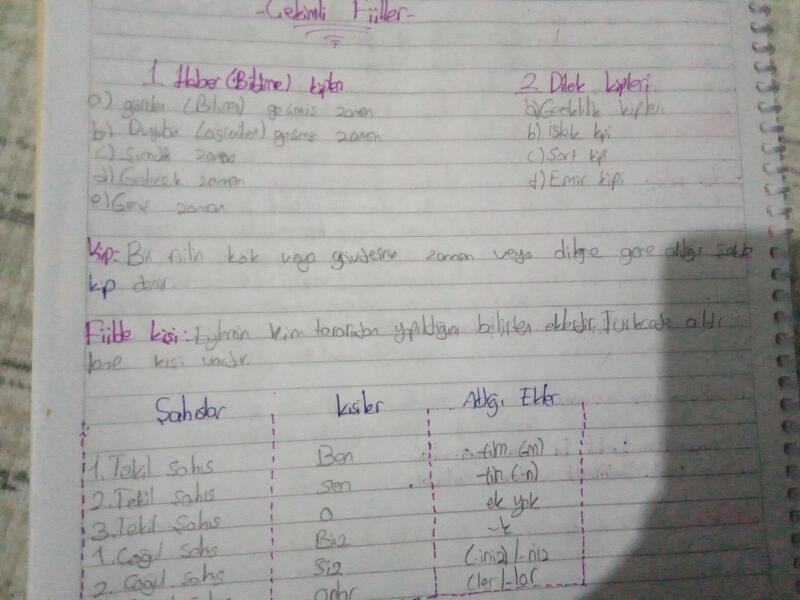 -Çekimli Fiiller-
1. Haber (Bildirme) kipleri
2. Dilek kipleri
a) görülen (Bilinen) geçmiş zaman
a) Gereklilik kipleri
b) Duyulan (öğrenilen) geçmiş zaman
b) istek kipi
c) Şimdiki zaman
c) Şart kipi
d) Gelecek zaman
d) Emir kipi
e) Geniş zaman
Kip= Bir fiilin kök veya gövdesine zaman veya dileğe göre aldığı şekle
kip denir.
Fiilde kişi: Eylemin kim tarafından yapıldığını belirten eklerdir. Türkçede altı
tane kişi vardır.
Şahıslar kişiler Aldığı Ekler
1. Tekil şahıs Ben -(i)m (-m)
2. Tekil şahıs sen -(i)n (-n)
3. Tekil şahıs O ek yok
1. Çoğul şahıs Biz -k
2. Çoğul şahıs Siz (-iniz) / -niz
onlar (ler / -lar